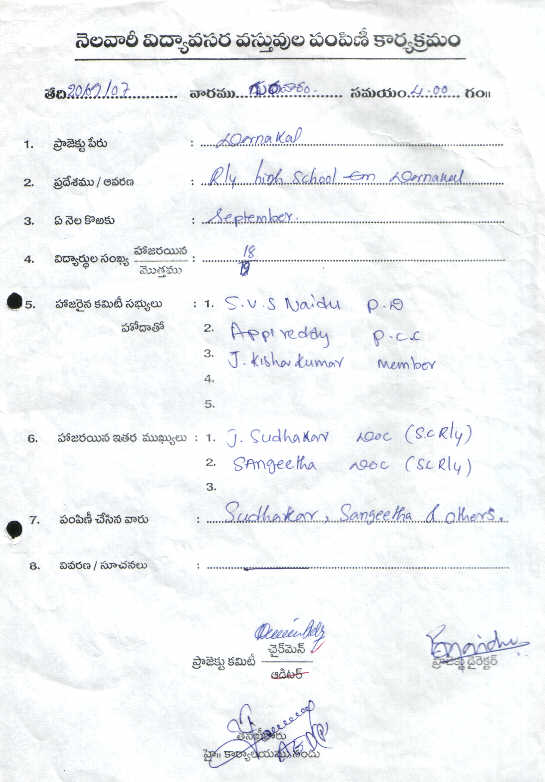 నెలవారీ విద్యావసర వస్తువుల పంపిణీ కార్యక్రమం
తేది 20/9/07 వారము గురువారం. సమయం 4.00 గం॥
1. ప్రాజెక్టు పేరు : Dornakal
2. ప్రదేశము / ఆవరణ : Rly high School Em Dornakal
3. ఏ నెల కొఱకు : September.
4. విద్యార్థుల సంఖ్య హాజరయిన : 18
మొత్తము
5. హాజరైన కమిటీ సభ్యులు : 1. S.V.S Naidu P.D
హోదాతో 2. Appi reddy P.C.C
3. J. Kishor Kumar member
4.
5.
6. హాజరయిన ఇతర ముఖ్యులు : 1. J. Sudhakar DOC (S.C Rly)
2. SAngeetha DOC (SC Rly)
3.
7. పంపిణీ చేసిన వారు : Sudhakar, Sangeetha & others.
8. వివరణ / సూచనలు :
ప్రాజెక్టు కమిటీ చైర్‌మెన్
ఆడిటర్
ప్రాజెక్టు డైరెక్టర్
హై॥ కార్యాలయమునందు